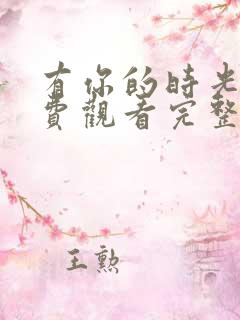 有你的时光
費觀看完整
王勲